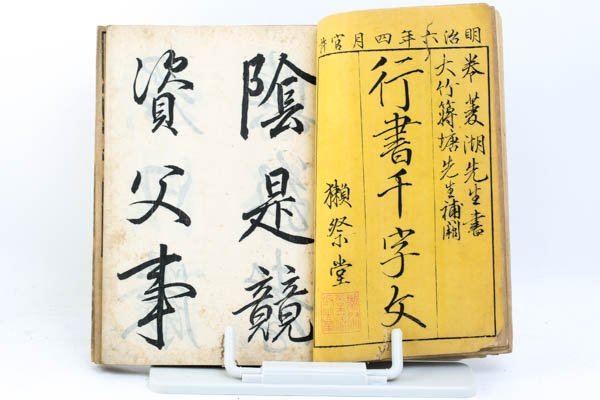 明治六年四月官許
巻菱湖先生書
大竹蔣塘先生補闕
行書千字文
獺祭堂
陰是競
資父事